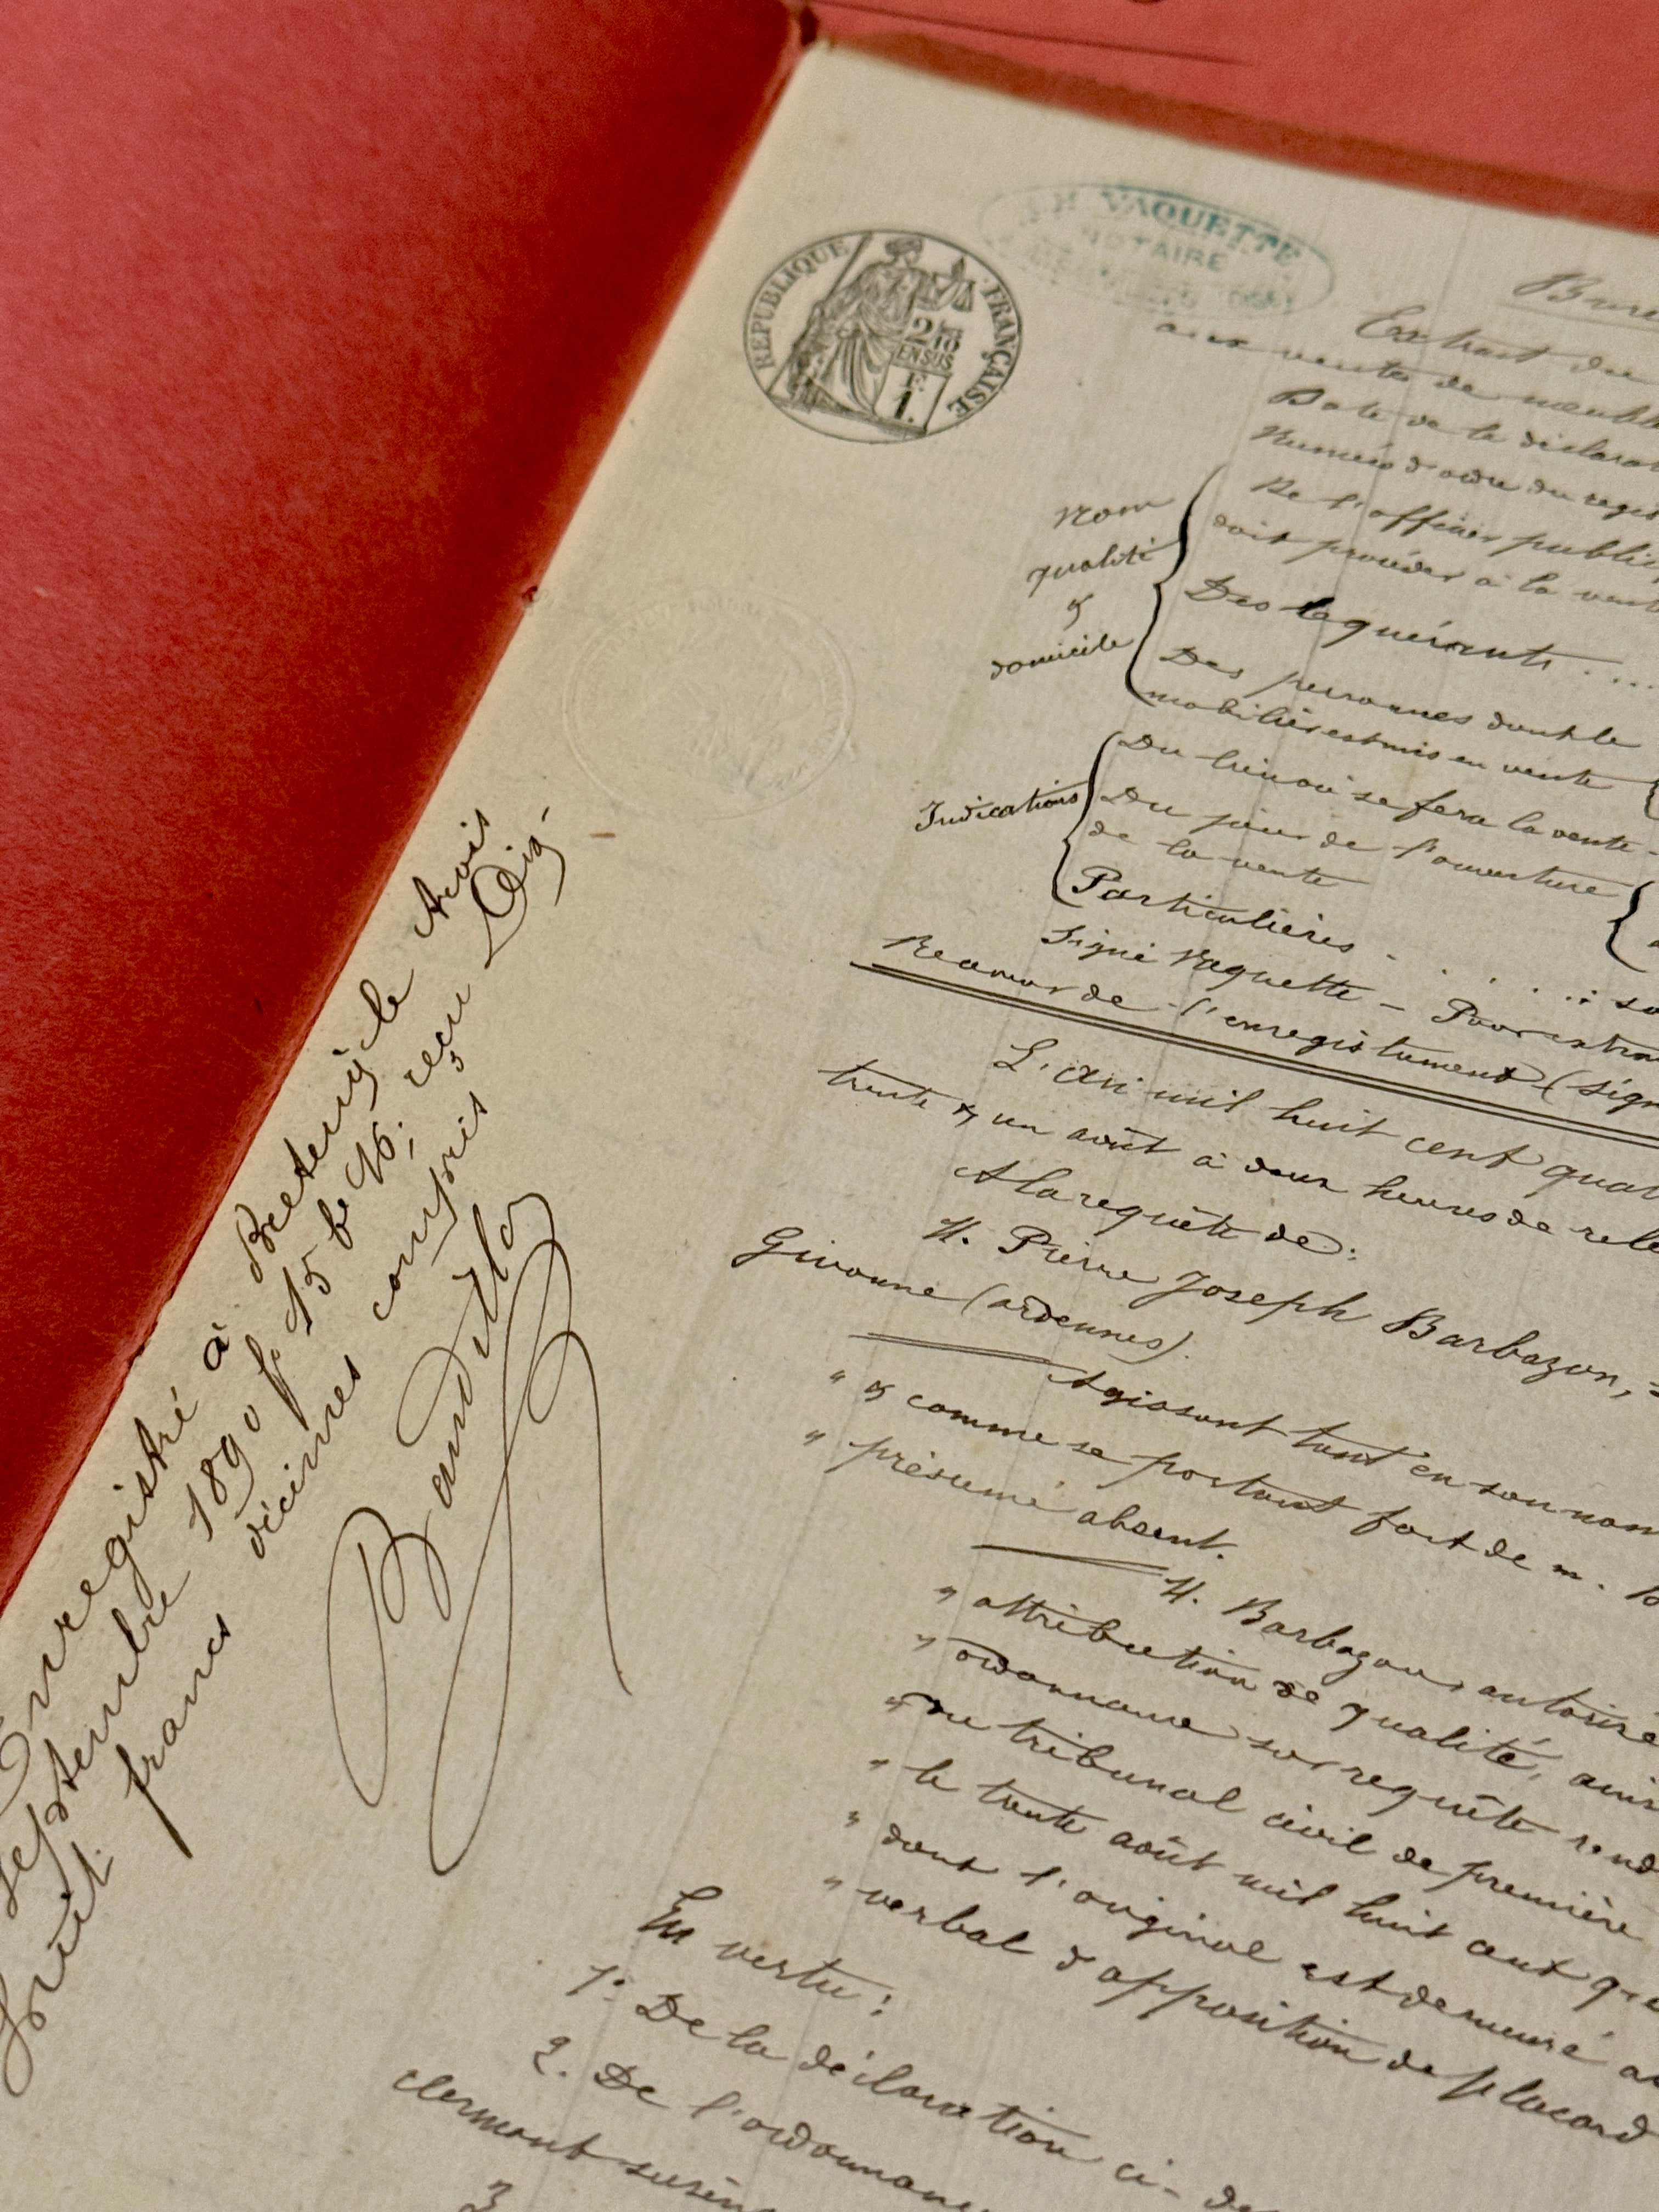 VAQUETTE
NOTAIRE
REPUBLIQUE FRANÇAISE
2/10
EN SUS
F.
1.
Extrait du
aux ventes de meubl
Date de la déclarat
Numéro d'ordre du regis
De l'officier public
doit procéder à la vent
Nom
qualité
&
domicile
Des requérants . . . .
Des personnes dont le
mobilier est mis en vente
Indications
Du lieu où se fera la vente -
Du jour de l'ouverture
de la vente
Particulières . . . . .
Signé Vaquette - Pour extra
Receveur de l'enregistrement (sign
L'an mil huit cent quat
trente & un août à deux heures de rele
A la requête de:
M. Pierre Joseph Barbazon,
Givonne (ardennes).
Agissant tant en son nom
" & comme se portant fort de m. B
" présumé absent.
M. Barbazon, autorisé
" attribution de qualité, ains
" ordonnance sur requête rend
" du tribunal civil de première
" le trente août mil huit cent qua
" dont l'original est demeuré a
" verbal d'apposition de placard
En vertu:
1° De la déclaration ci-de
2. De l'ordonnanc
clermont
3
Enregistré à Breteuil le trois
septembre 1890 fo 15 Co 6; reçu Dix-
huit francs décimes compris